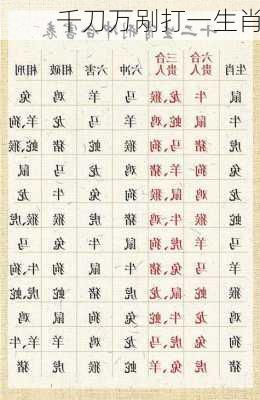 千刀万剐打一生肖
生肖 六合贵人 三合贵人 六冲 六害 相破 相刑
鼠 牛 龙,猴 马 羊 鸡 兔
牛 鼠 蛇,鸡 羊 马 龙 羊,狗
虎 猪 马,狗 猴 蛇 猪 蛇,猴
兔 狗 羊,猪 鸡 龙 马 鼠
龙 鸡 鼠,猴 狗 兔 牛 龙
蛇 猴 牛,鸡 猪 虎 猴 虎,猴
马 羊 虎,狗 鼠 牛 兔 马
羊 马 兔,猪 牛 鼠 狗 牛,狗
猴 蛇 鼠,龙 虎 猪 蛇 虎,蛇
鸡 龙 牛,蛇 兔 狗 鼠 鸡
狗 兔 虎,马 龙 鸡 羊 羊,牛
猪 虎 兔,羊 蛇 猴 虎 猪